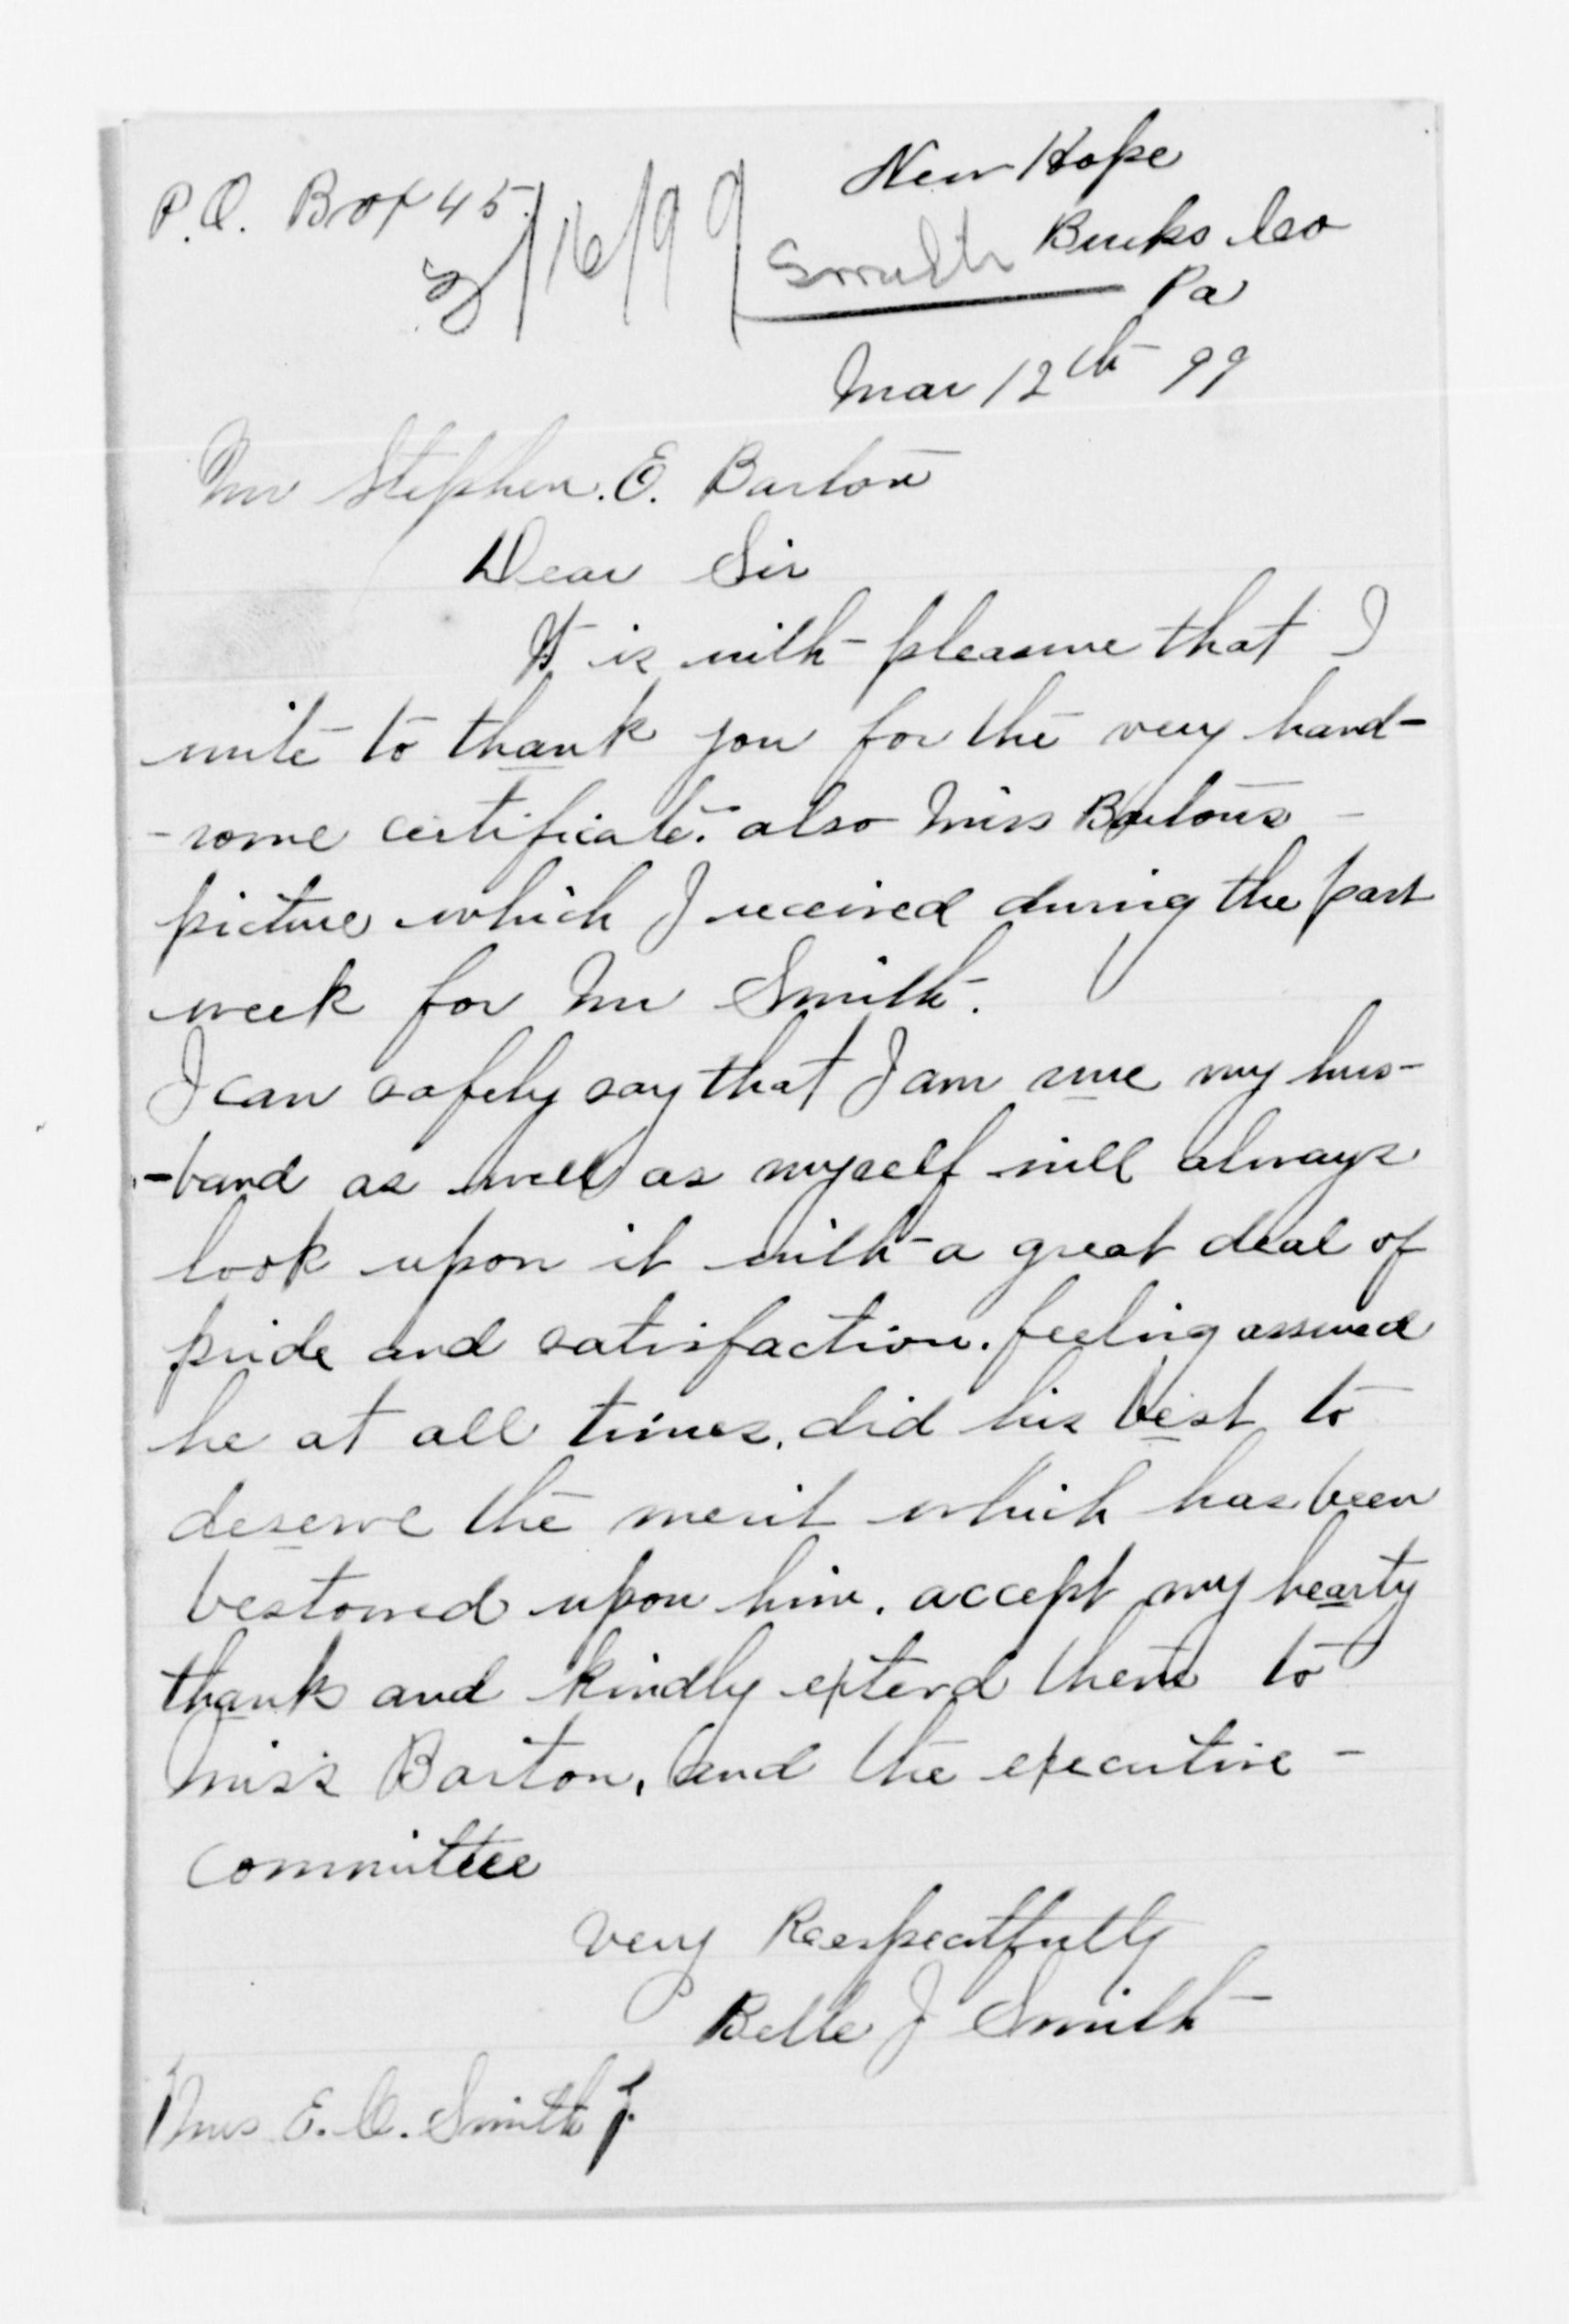 New Hope
P.O. Box 45.
3/16/99 Smith
Bucks Co
Pa
Mar 12th 99
Mr Stephen. E. Barton
Dear Sir
It is with pleasure that I
write to thank you for the very hand-
-some certificate. also Miss Bartons
picture which I received during the past
week for Mr Smith.
I can safely say that I am sure my hus-
-band as well as myself will always
look upon it with a great deal of
pride and satisfaction. feeling assured
he at all times, did his best to
deserve the merit which has been
bestowed upon him. accept my hearty
thanks and kindly extend them to
Miss Barton, and the executive -
Committee
Very Respectfully
Belle J Smith
Mrs E. C. Smith J.